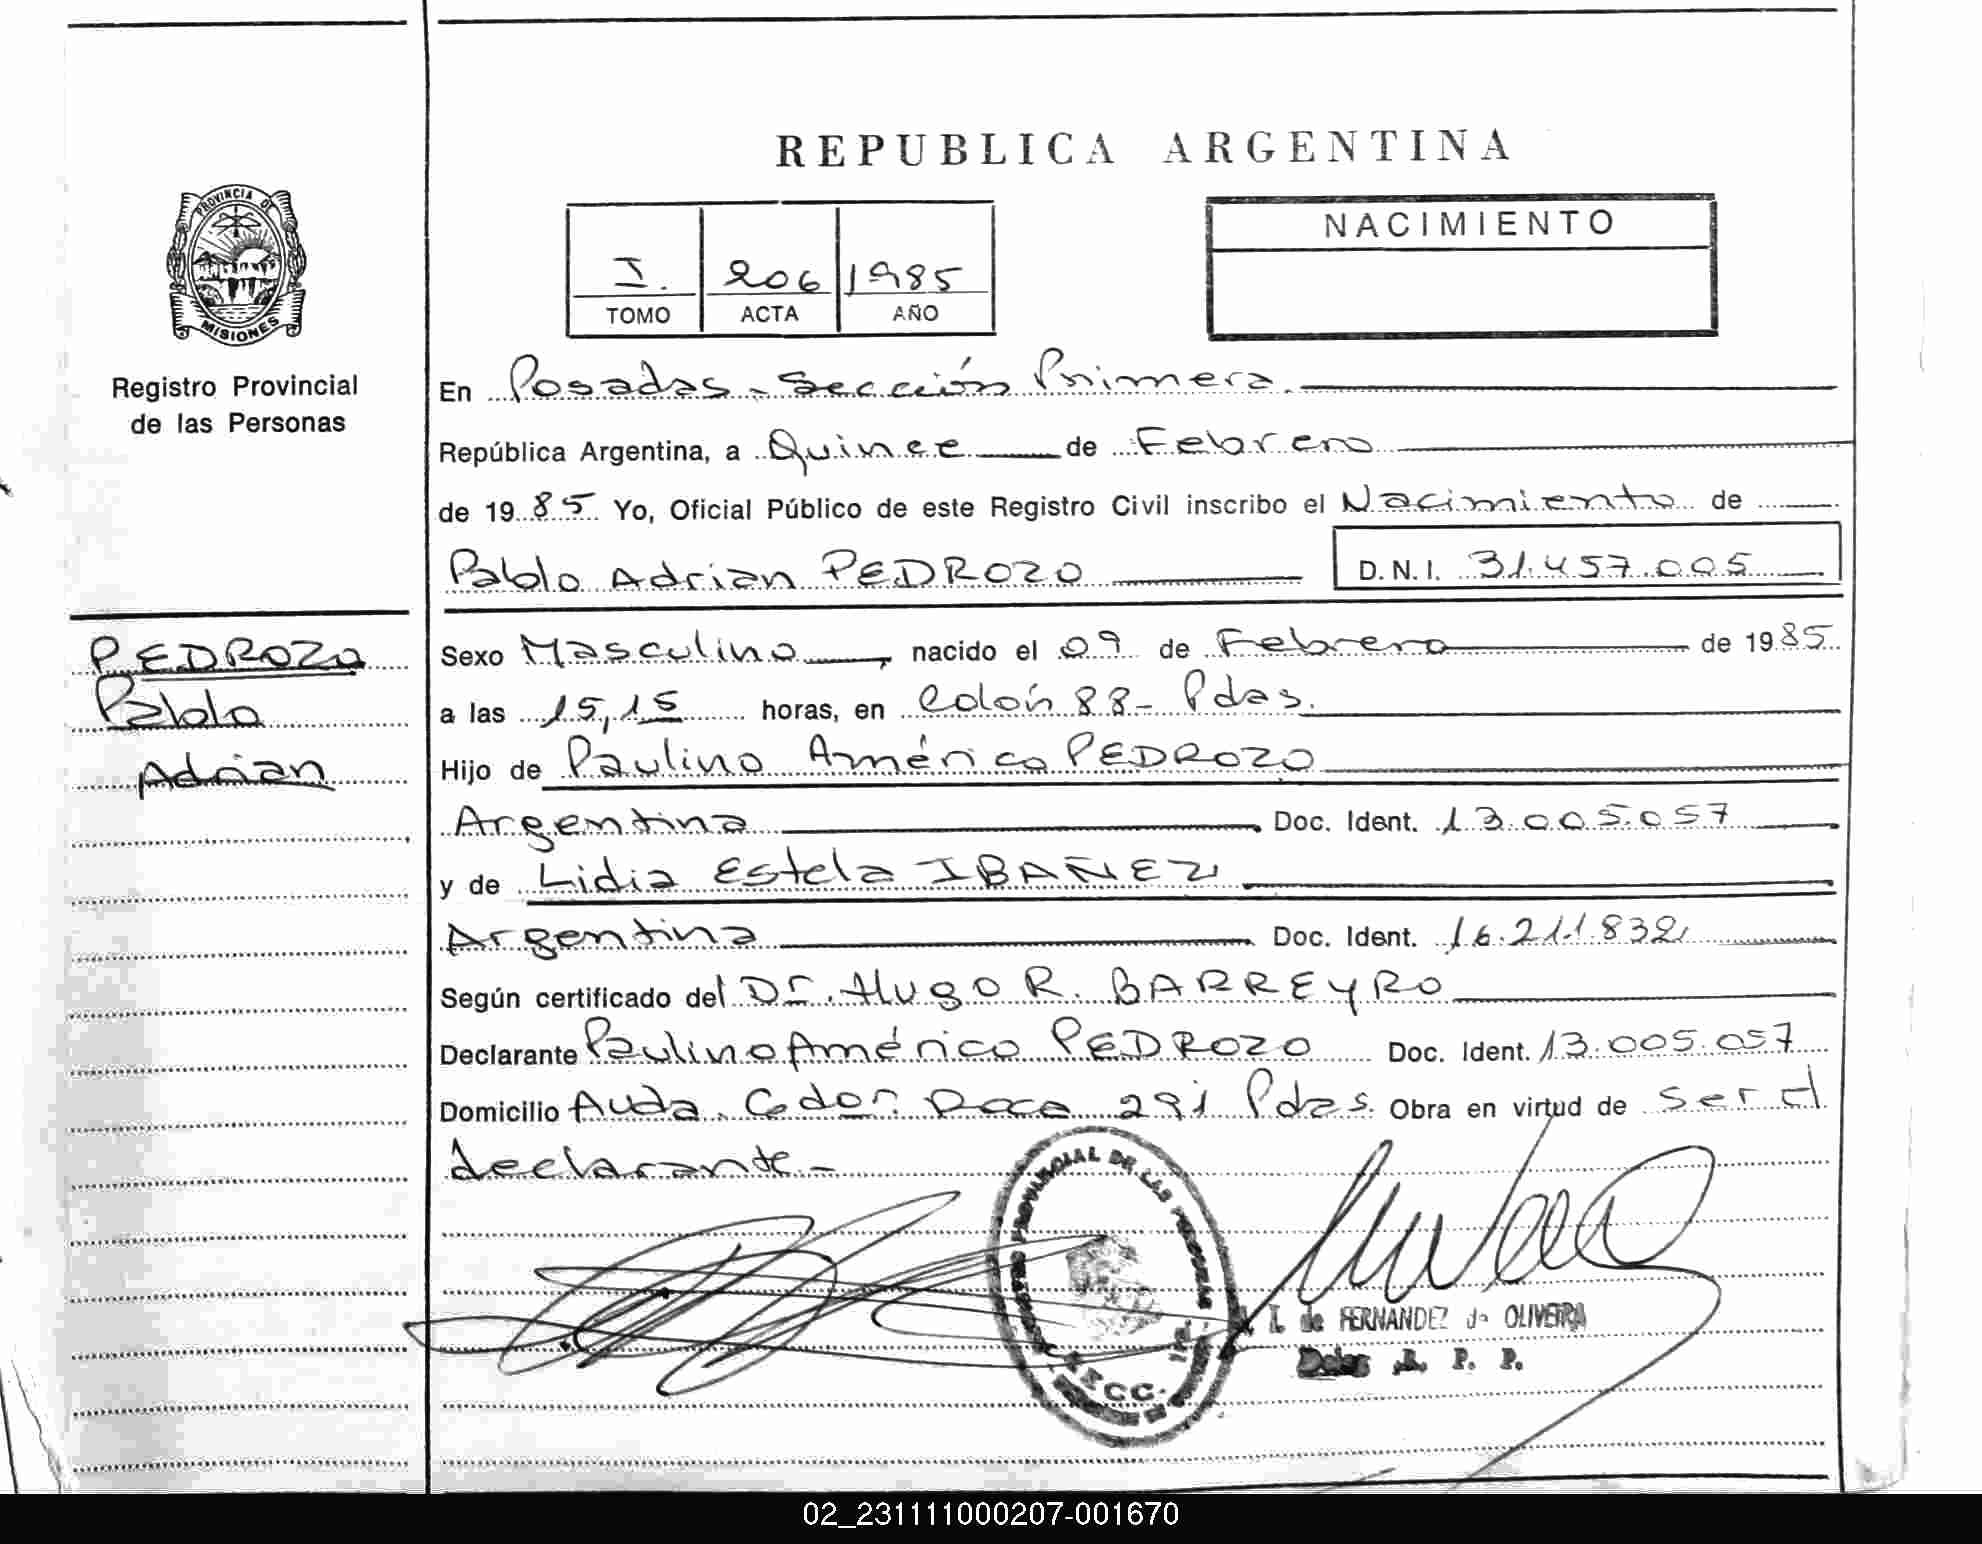 REPUBLICA ARGENTINA
PROVINCIA DE
MISIONES
Registro Provincial
de las Personas
I. 206 1985
TOMO ACTA AÑO
NACIMIENTO
En Posadas - Sección Primera.
República Argentina, a Quince de Febrero
de 1985 Yo, Oficial Público de este Registro Civil inscribo el Nacimiento de
Pablo Adrian PEDROZO D.N.I. 31.457.005
PEDROZO
Pablo
Adrian
Sexo Masculino, nacido el 09 de Febrero de 1985
a las 15,15 horas, en Colón 88- Pdas.
Hijo de Paulino Américo PEDROZO
Argentina Doc. Ident. 13.005.057
y de Lidia Estela IBAÑEZ
Argentina Doc. Ident. 16.211.832
Según certificado del Dr. Hugo R. BARREYRO
Declarante Paulino Américo PEDROZO Doc. Ident. 13.005.057
Domicilio Avda. Cdor. Roca 291 Pdas. Obra en virtud de ser el
declarante.-
PROVINCIAL DE LAS PERSONAS
I. de FERNANDEZ de OLIVEIRA
R. P. P.
02_231111000207-001670